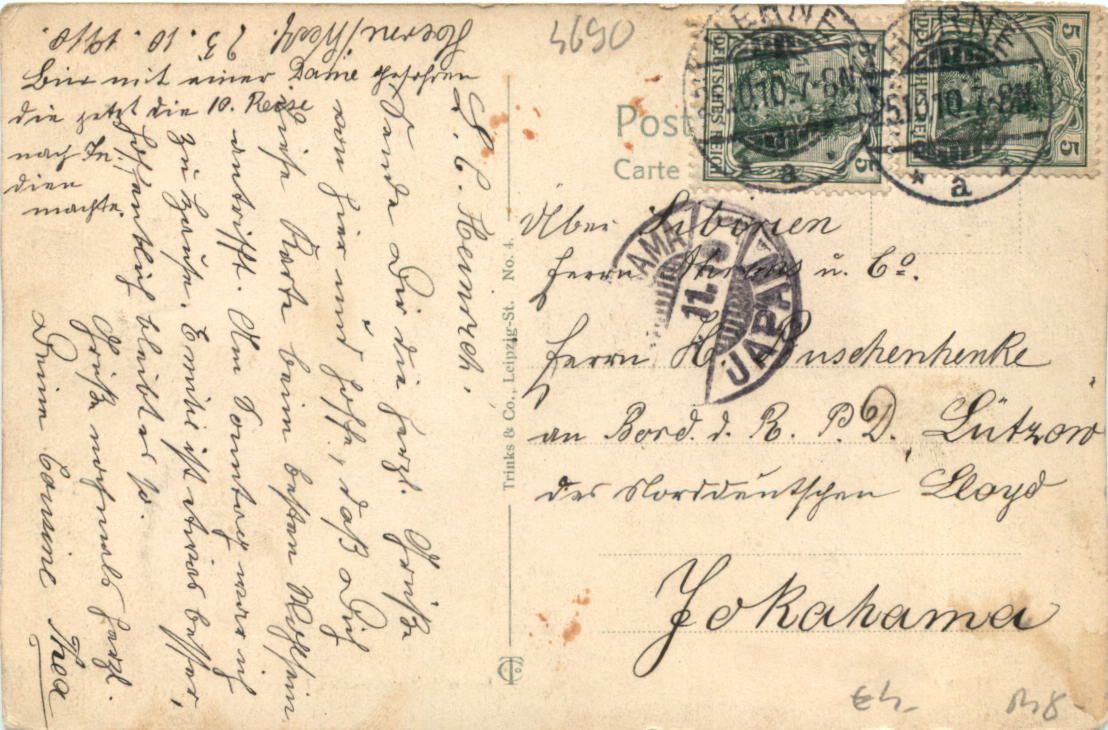 Herne/Westf. 23. 10. 1910.
Bin mit einer Dame gefahren
die jetzt die 10. Reise
nach In-
dien
machte.
L. C. Heinrich.
Sende Dir die herzl. Grüße
von hier und hoffe, daß Dich
diese Karte beim besten Wohlsein
antrifft. Am Sonntag war ich
zu Hause. Emil ist etwas besser,
hoffentlich bleibt es so.
Grüße nochmals herzl.
Deine Cousine Thea
4690
Trinks & Co., Leipzig-St. No. 4.
Post
Carte
DEUTSCHES REICH
5
5
DEUTSCHES REICH
5
5
HERNE
10.10.7-8N.
* a
HERNE
25.10.10.7-8N.
* a *
AMA
11.
JAPAN
Über Sibirien
Herrn u. Co.
Herrn H. Puschenhenke
an Bord. d. R. P. D. Lützow
des Norddeutschen Lloyd
Jokahama